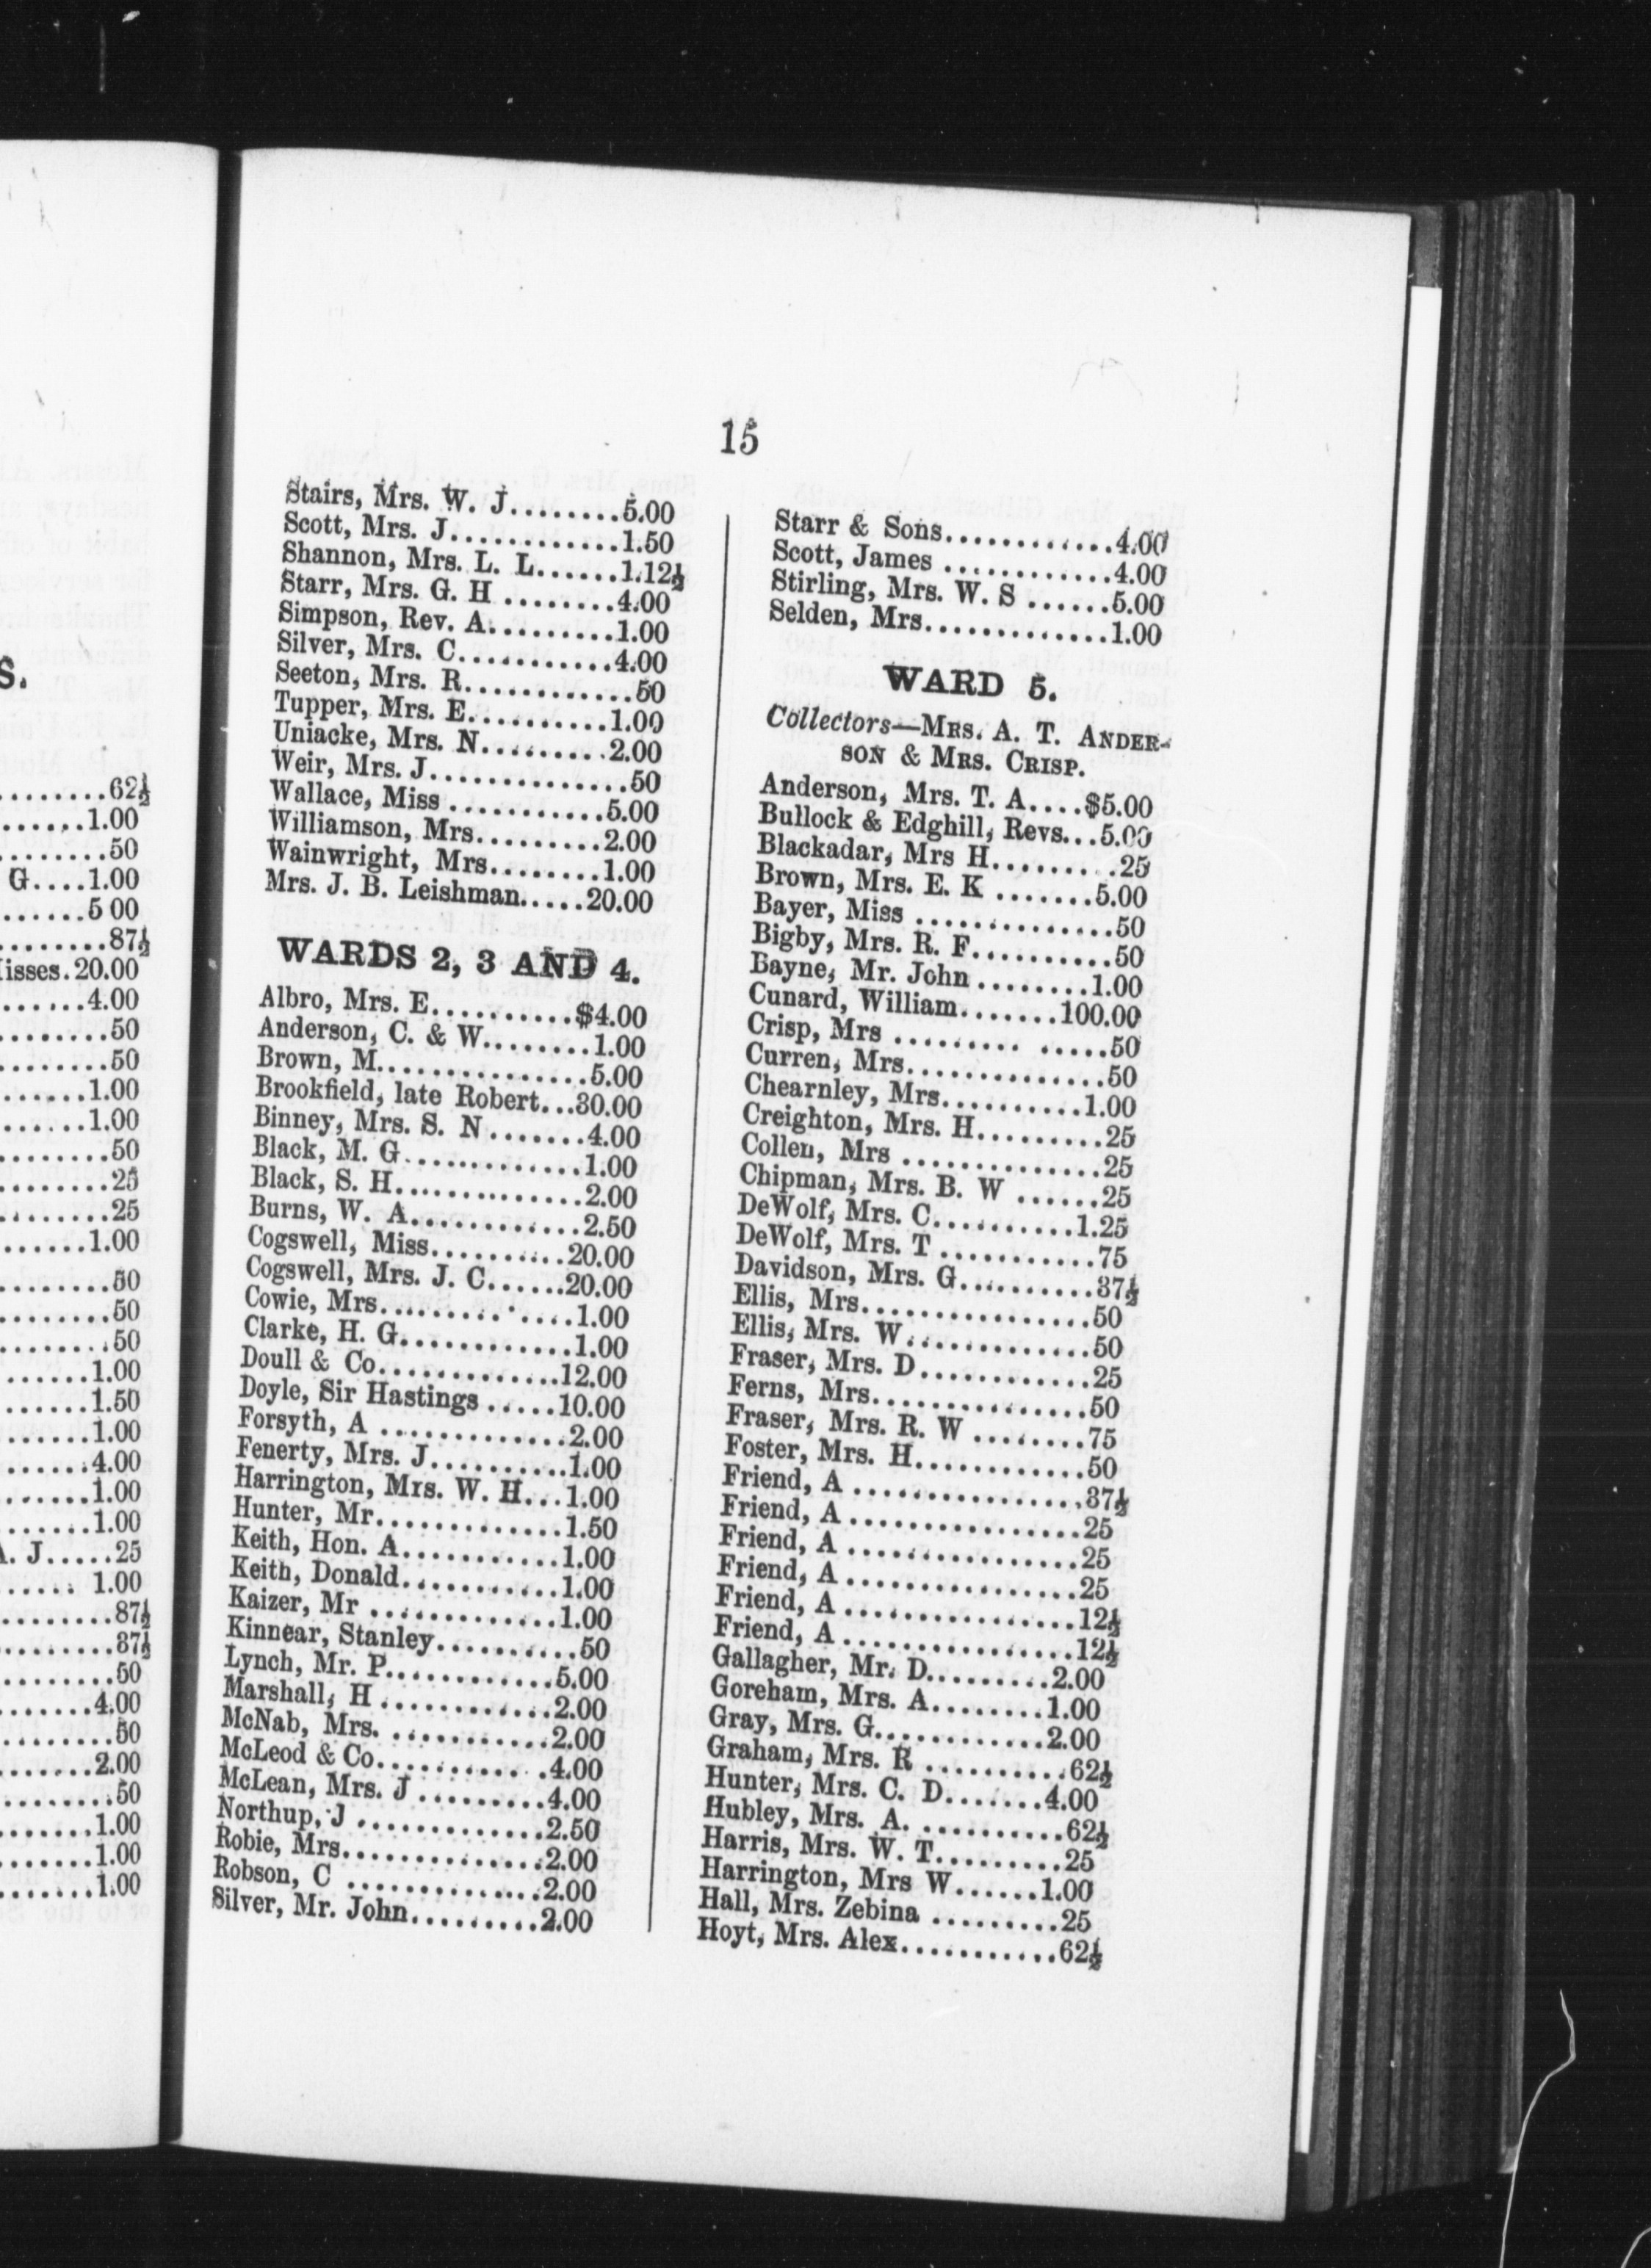 S.
........62½
......1.00
........50
G....1.00
......5 00
........87½
isses.20.00
......4.00
........50
........50
......1.00
......1.00
........50
........25
........25
......1.00
........50
........50
........50
......1.00
......1.50
......1.00
......4.00
......1.00
......1.00
A. J.....25
...... 1.00
........87½
........37½
........50
.......4.00
........50
.......2.00
........50
.......1.00
.......1.00
.......1.00
15
Stairs, Mrs. W. J........5.00
Scott, Mrs. J............1.50
Shannon, Mrs. L. L......1.12½
Starr, Mrs. G. H ........4.00
Simpson, Rev. A.........1.00
Silver, Mrs. C...........4.00
Seeton, Mrs. R............50
Tupper, Mrs. E..........1.00
Uniacke, Mrs. N.........2.00
Weir, Mrs. J..............50
Wallace, Miss ...........5.00
Williamson, Mrs.........2.00
Wainwright, Mrs........1.00
Mrs. J. B. Leishman.....20.00
WARDS 2, 3 AND 4.
Albro, Mrs. E..........$4.00
Anderson, C. & W........1.00
Brown, M...............5.00
Brookfield, late Robert...30.00
Binney, Mrs. S. N .......4.00
Black, M. G.............1.00
Black, S. H.............2.00
Burns, W. A............2.50
Cogswell, Miss..........20.00
Cogswell, Mrs. J. C......20.00
Cowie, Mrs..............1.00
Clarke, H. G............1.00
Doull & Co.............12.00
Doyle, Sir Hastings .....10.00
Forsyth, A .............2.00
Fenerty, Mrs. J..........1.00
Harrington, Mrs. W. H...1.00
Hunter, Mr.............1.50
Keith, Hon. A...........1.00
Keith, Donald...........1.00
Kaizer, Mr .............1.00
Kinnear, Stanley..........50
Lynch, Mr. P............5.00
Marshall, H ............2.00
McNab, Mrs. ...........2.00
McLeod & Co............4.00
McLean, Mrs. J .........4.00
Northup, J .............2.50
Robie, Mrs..............2.00
Robson, C ..............2.00
Silver, Mr. John.........2.00
Starr & Sons............4.00
Scott, James ............4.00
Stirling, Mrs. W. S ......5.00
Selden, Mrs.............1.00
WARD 5.
Collectors—MRS. A. T. ANDER-
SON & MRS. CRISP.
Anderson, Mrs. T. A....$5.00
Bullock & Edghill, Revs...5.00
Blackadar, Mrs H.........25
Brown, Mrs. E. K .......5.00
Bayer, Miss ..............50
Bigby, Mrs. R. F..........50
Bayne, Mr. John ........1.00
Cunard, William.......100.00
Crisp, Mrs ......... .....50
Curren, Mrs..............50
Chearnley, Mrs..........1.00
Creighton, Mrs. H.........25
Collen, Mrs ..............25
Chipman, Mrs. B. W ......25
DeWolf, Mrs. C..........1.25
DeWolf, Mrs. T ...........75
Davidson, Mrs. G..........37½
Ellis, Mrs................50
Ellis, Mrs. W.............50
Fraser, Mrs. D............25
Ferns, Mrs...............50
Fraser, Mrs. R. W ........75
Foster, Mrs. H............50
Friend, A .................37½
Friend, A .................25
Friend, A .................25
Friend, A .................25
Friend, A .................12½
Friend, A .................12½
Gallagher, Mr. D.........2.00
Goreham, Mrs. A........1.00
Gray, Mrs. G............2.00
Graham, Mrs. R ..........62½
Hunter, Mrs. C. D.......4.00
Hubley, Mrs. A. ..........62½
Harris, Mrs. W. T.........25
Harrington, Mrs W......1.00
Hall, Mrs. Zebina .........25
Hoyt, Mrs. Alex...........62½